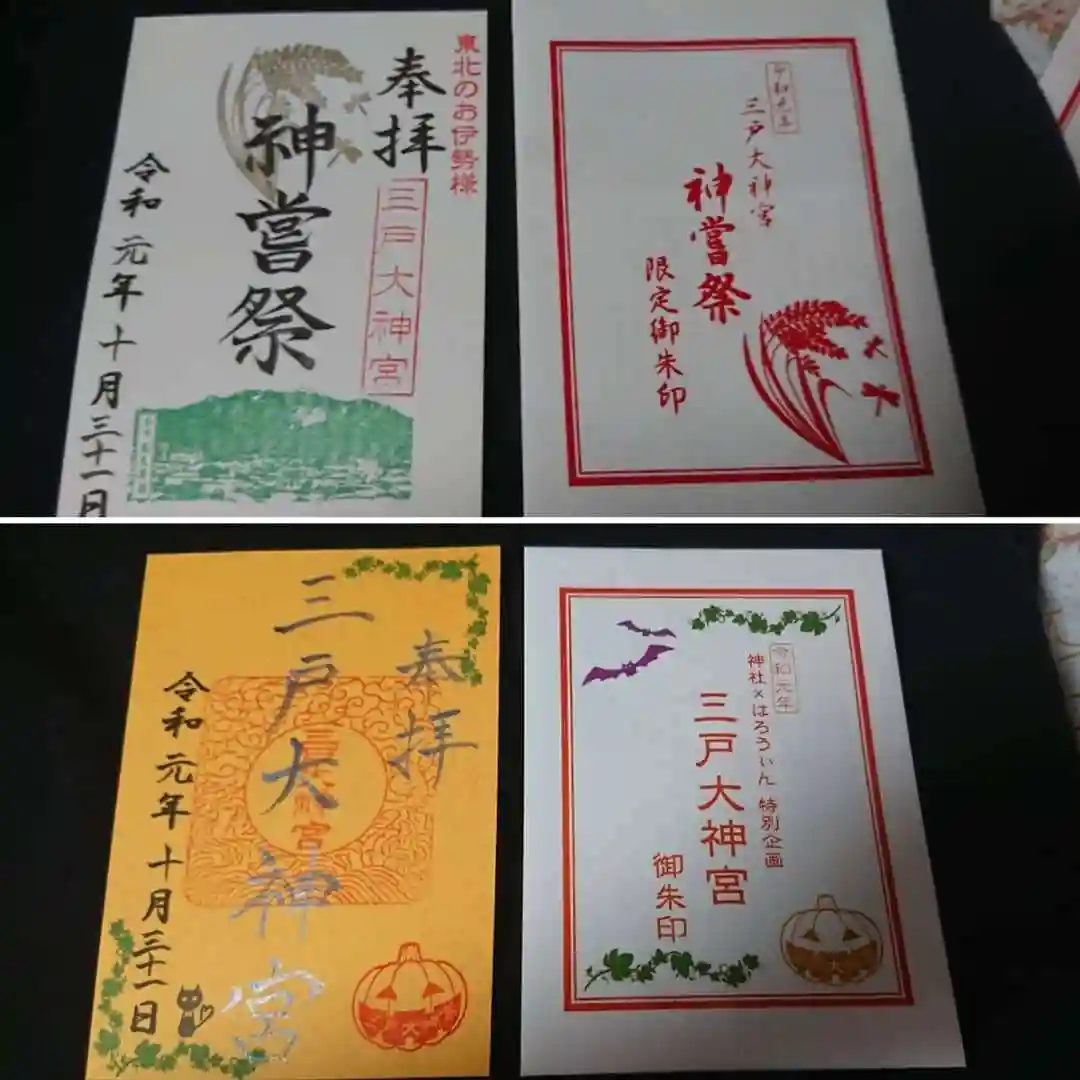 東北のお伊勢様
奉拝
三戸大神宮
神嘗祭
令和元年十月三十一日
令和元年
三戸大神宮
神嘗祭
限定御朱印
奉拝
三戸大神宮
令和元年十月三十一日
令和元年
神社×はろうぃん 特別企画
三戸大神宮
御朱印